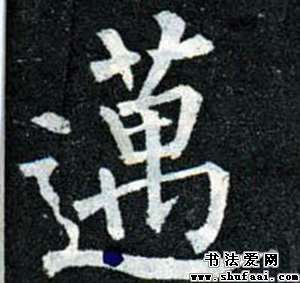 邁
书法爱网
www.shufaai.com